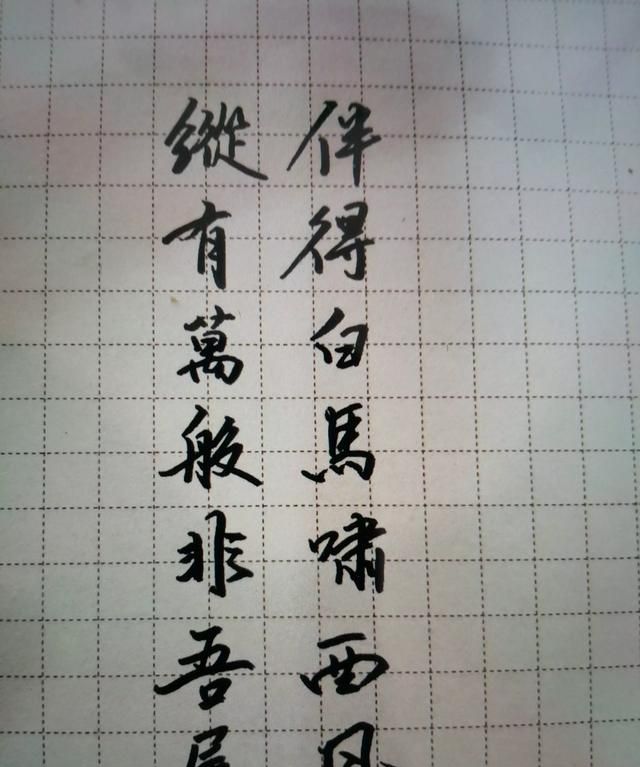 伴得白馬嘯西風
縱有萬般非吾